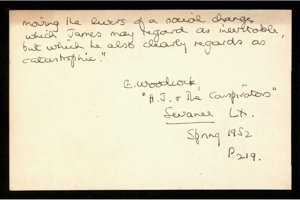 moving the levers of a social change
which James may regard as inevitable,
but which he also clearly regards as
catastrophic."
E. Woodcock,
"H.J. & The Conspirators"
Sewanee
Spring 1952
P219.